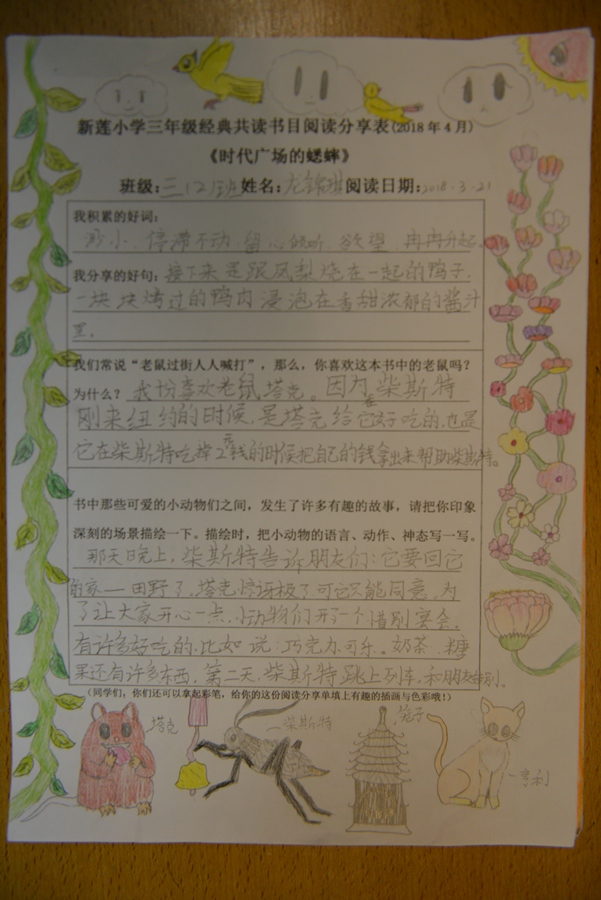 新莲小学三年级经典共读书目阅读分享表(2018年4月)
《时代广场的蟋蟀》
班级:三(2)班姓名:龙锦 阅读日期:2018.3.21
我积累的好词:
渺小、停滞不动、留心倾听、欲望、冉冉升起。
我分享的好句:接下来是跟凤梨烧在一起的鸭子,
一块块烤过的鸭肉浸泡在香甜浓郁的酱汁
里。
我们常说“老鼠过街人人喊打”,那么,你喜欢这本书中的老鼠吗?
为什么?我份喜欢老鼠塔克。因为在柴斯特
刚来纽约的时候,是塔克给它送吃的,也是
它在柴斯特吃掉2元钱的时候把自己的钱拿出来帮助柴斯特。
书中那些可爱的小动物们之间,发生了许多有趣的故事,请把你印象
深刻的场景描绘一下。描绘时,把小动物的语言、动作、神态写一写。
那天晚上,柴斯特告诉朋友们:它要回它
的家——田野了,塔克惊讶极了可它只能同意,为
了让大家开心一点,小动物们开了个惜别宴会,
有许多好吃的,比如说:巧克力、可乐、奶茶、糖
果还有许多东西。第二天,柴斯特跳上列车,和朋友告别。
(同学们,你们还可以拿起彩笔,给你的这份阅读分享单填上有趣的插画与色彩哦!)
塔克
柴斯特
笼子
亨利